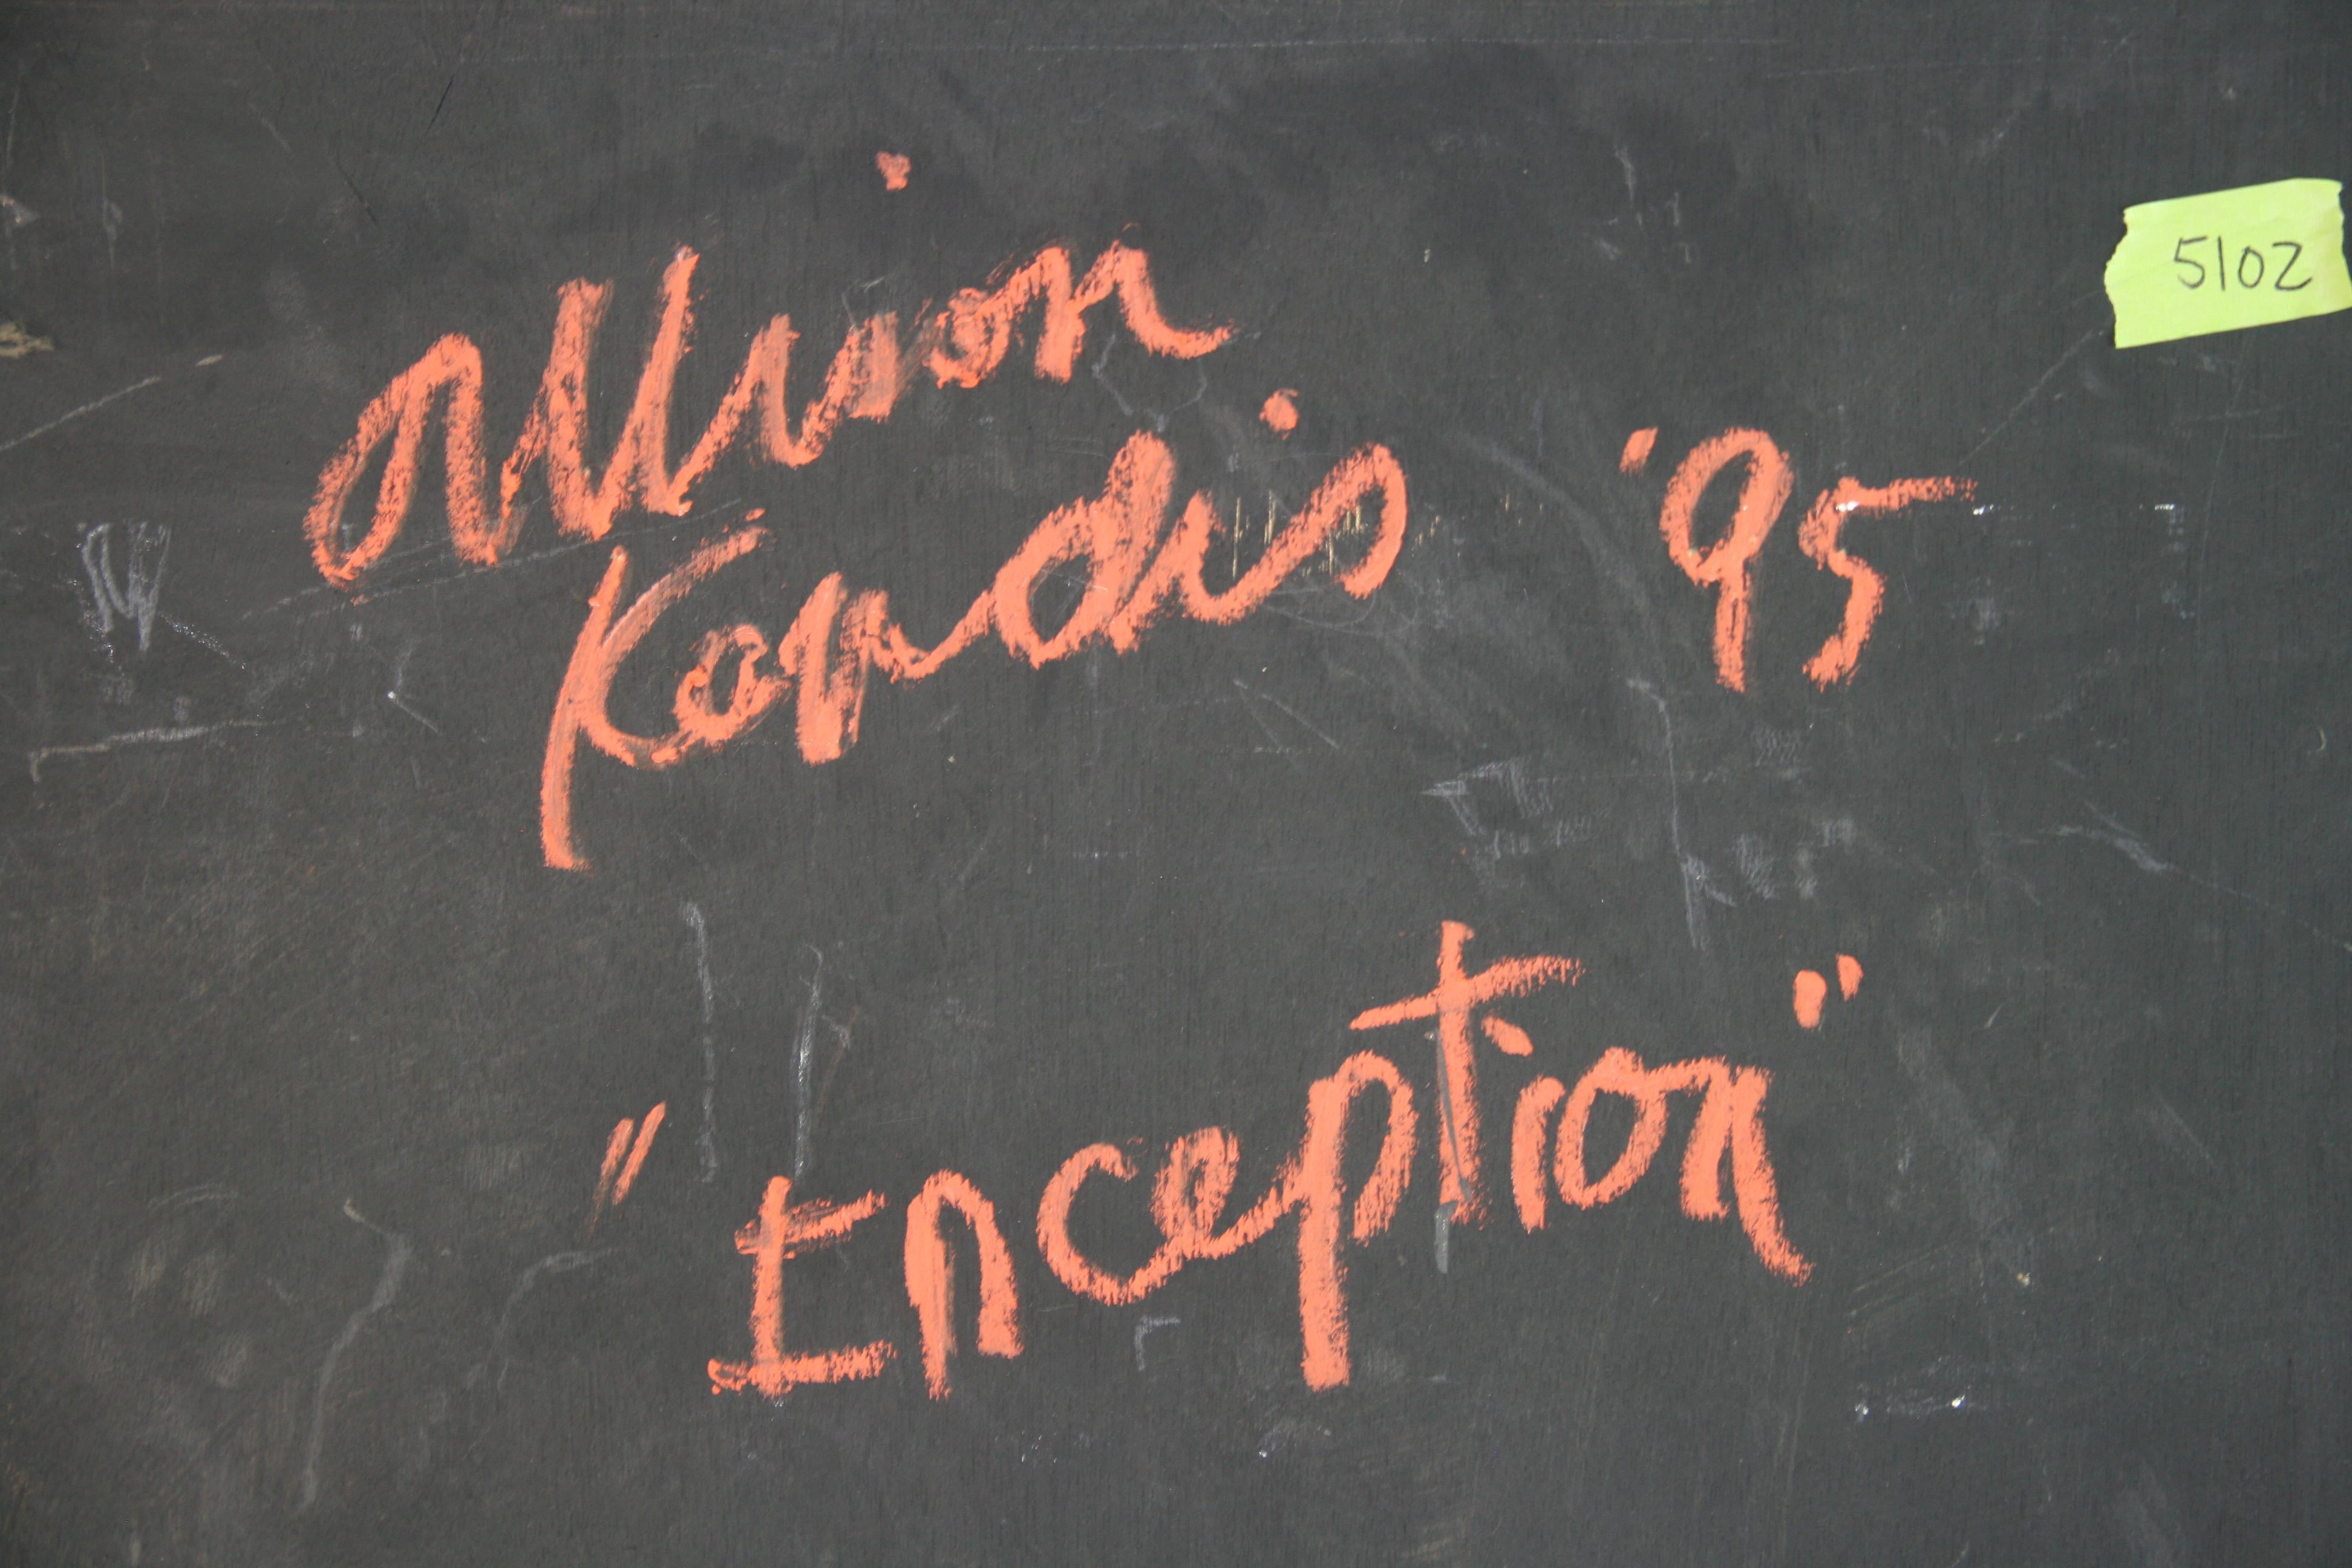 5102
Allison
Kandis '95
"Inception"